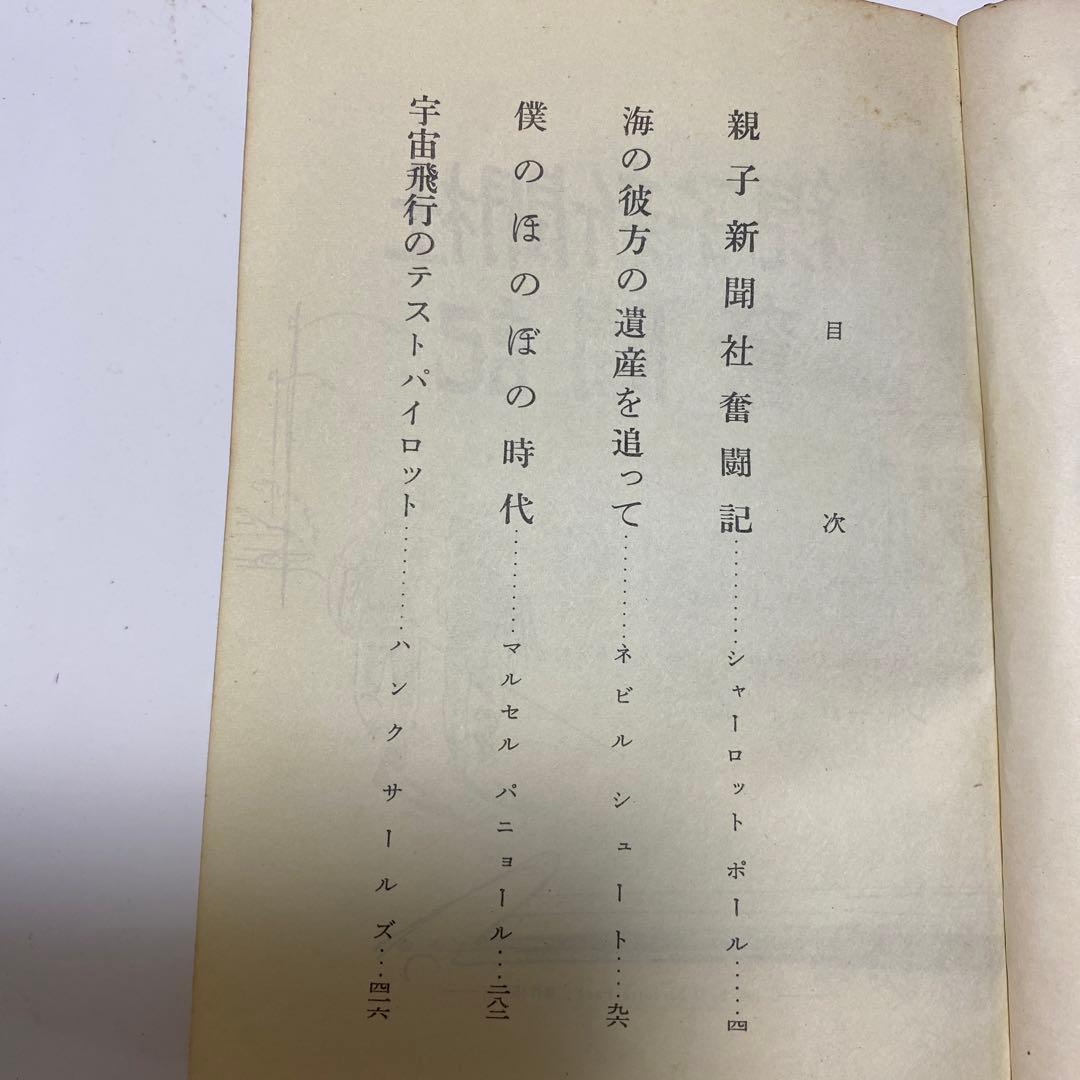 目次
親子新聞社奮闘記…………シャーロット ポール……四
海の彼方の遺産を追って…………ネビル シュート……九六
僕のほのぼの時代…………マルセル パニョール……二八二
宇宙飛行のテストパイロット…………ハンク サールズ……四一六